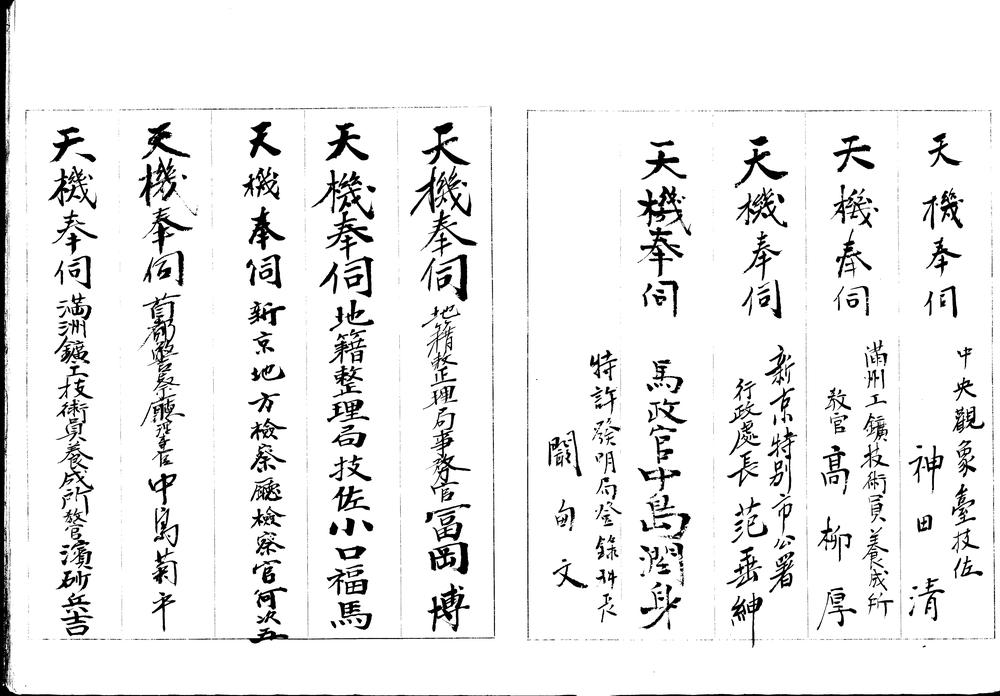 天機奉伺 中央觀象臺技佐
神田清
天機奉伺 滿州工鑛技術員養成所
教官 高柳厚
天機奉伺 新京特別市公署
行政處長 范垂紳
天機奉伺 馬政官中島潤身
特許發明局登錄科長
闞甸文
天機奉伺 地籍整理局事務官冨岡博
天機奉伺 地籍整理局技佐小口福馬
天機奉伺 新京地方檢察廳檢察官何次五
天機奉伺 首都警察廳 中島菊平
天機奉伺 満洲鑛工技術員養成所教官濱砂兵吉